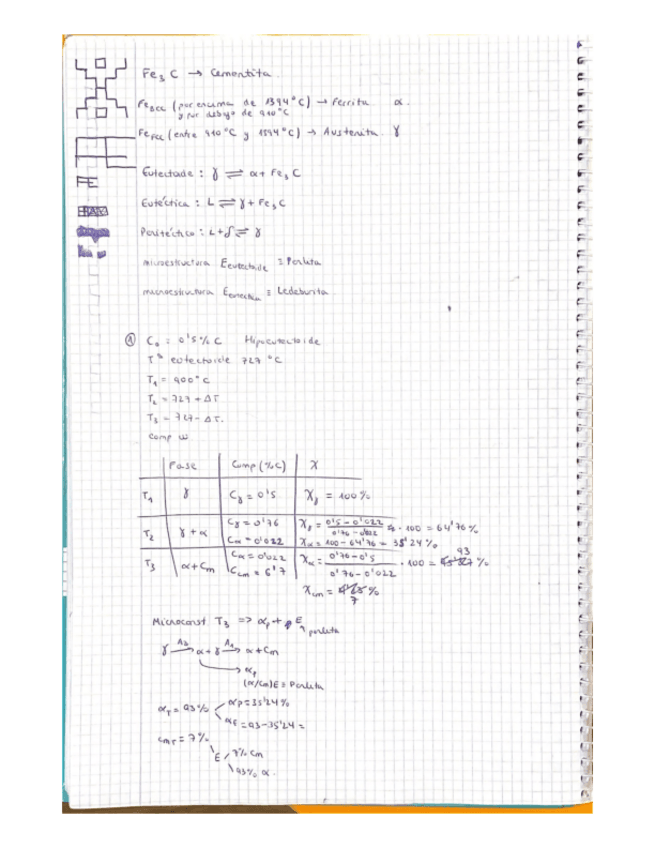 Fe3C → Cementita.
FeBCC (por encima de 1394°C) → Ferrita α.
y por debajo de 910°C
FeFCC (entre 910°C y 1394°C) → Austenita γ
FE
Eutectoide : γ ⇌ α + Fe3C
Eutéctica : L ⇌ γ + Fe3C
Peritéctica : L + δ ⇌ γ
microestructura Eeutectoide ≡ Perlita
macroestructura Eeutéctica ≡ Ledeburita
① C0 = 0'5% C Hipoeutectoide
Tª eutectoide 727 °C
T1 = 900°C
T2 = 727 + ΔT
T3 = 727 - ΔT.
Comp w
Fase Comp (%C) X
T1 γ Cγ = 0'5 Xγ = 100%
T2 γ + α Cγ = 0'76 Xγ = 0'5 - 0'022 / 0'76 - 0'022 · 100 = 64'76%
Cα = 0'022 Xα = 100 - 64'76 = 35'24%
T3 α + Cm Cα = 0'022 Xα = 0'76 - 0'5 / 0'76 - 0'022 · 100 = 93 %
Ccm = 6'7
Xcm = 7 %
Microconst T3 => αp + E
perlita
γ A3→ α + γ A1→ α + Cm
αp
(α/Cm)E ≡ Perlita
αT = 93% αp = 35'24%
αE = 93 - 35'24 =
cmT = 7%
E 7% Cm
93% α.